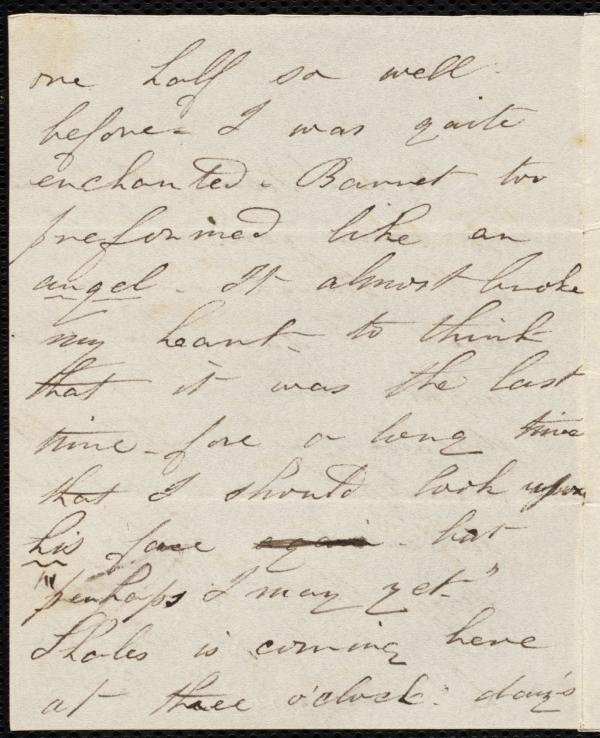 one half so well
before - I was quite
enchanted. Barret too
preformed like an
angel. It almost broke
my heart - to think
that it was the last
time - fore a long time
that I should look upon
his face again. but
"perhaps I may yet."
Shales is coming here
at three o'clock: day's